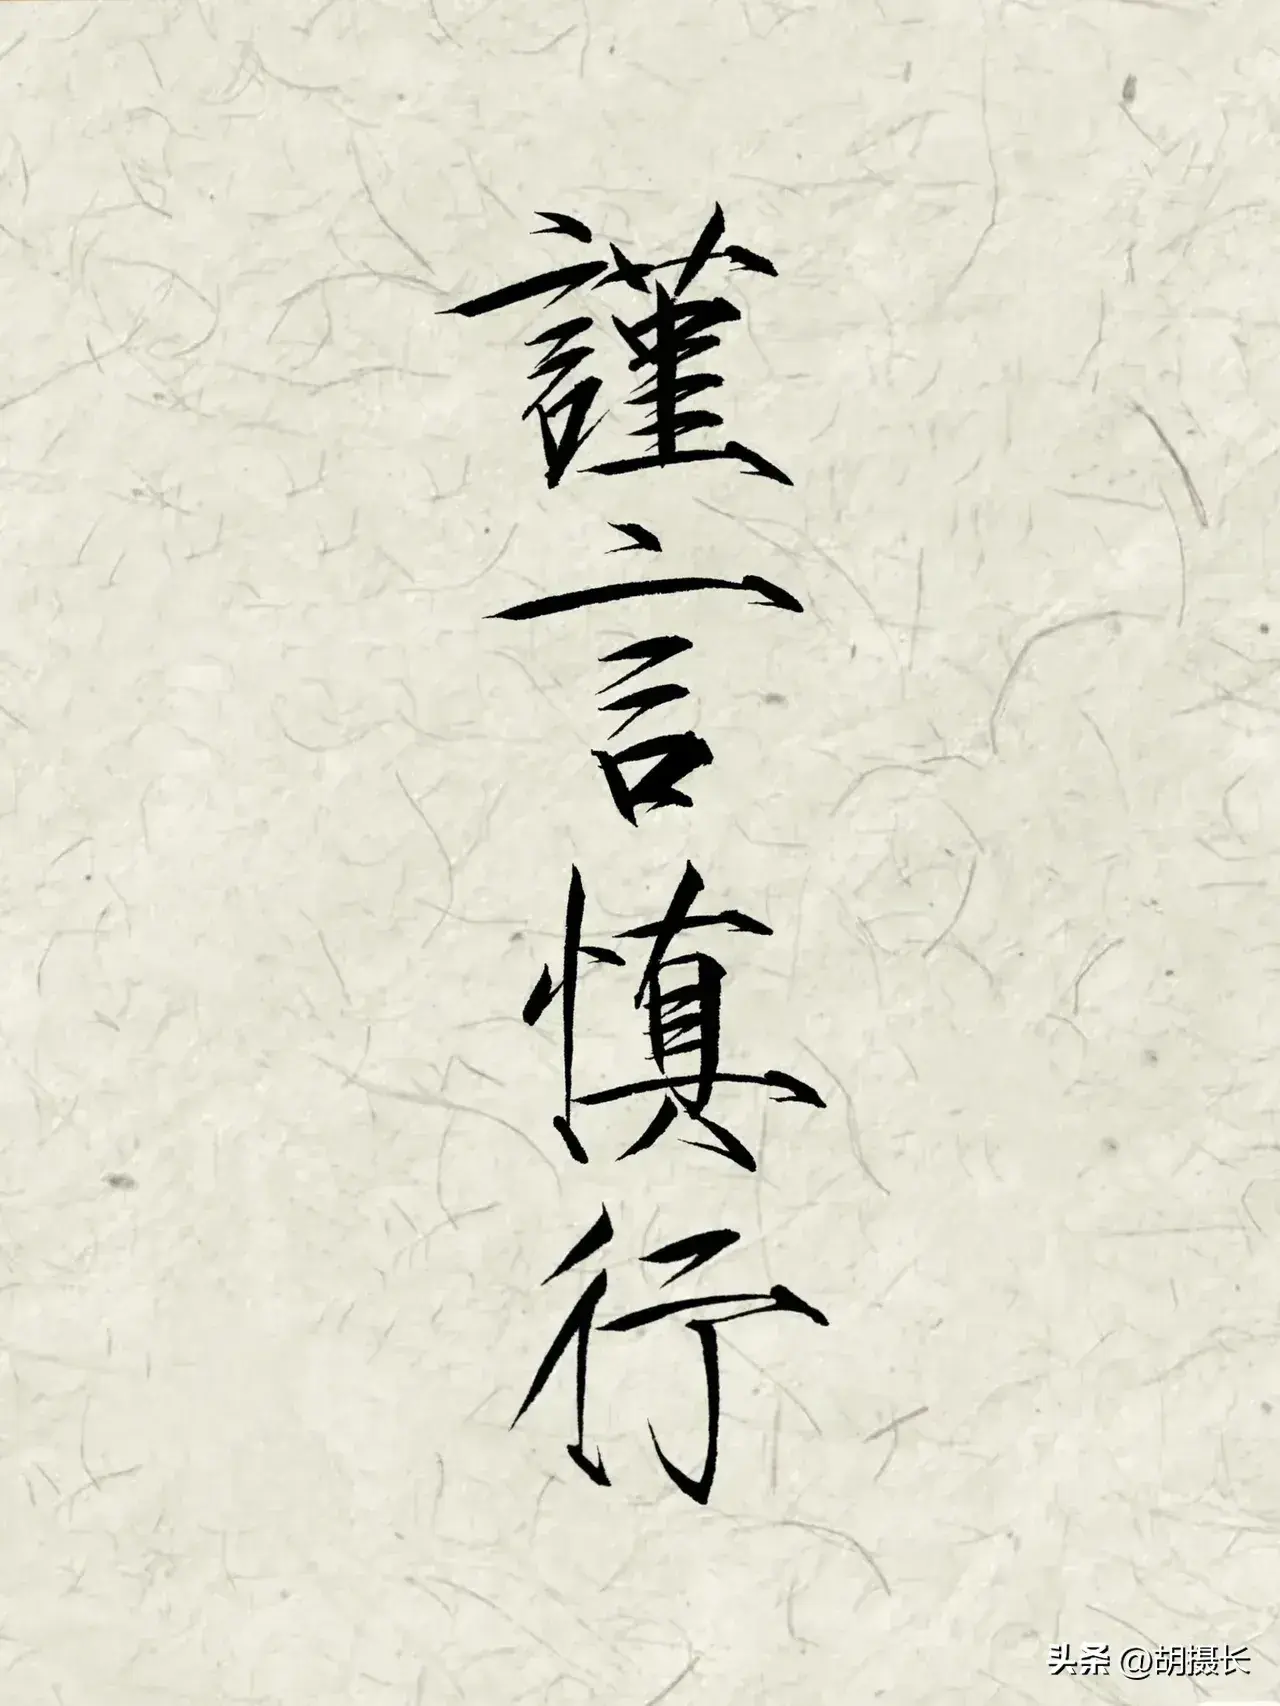 謹言慎行
头条 @胡摄长